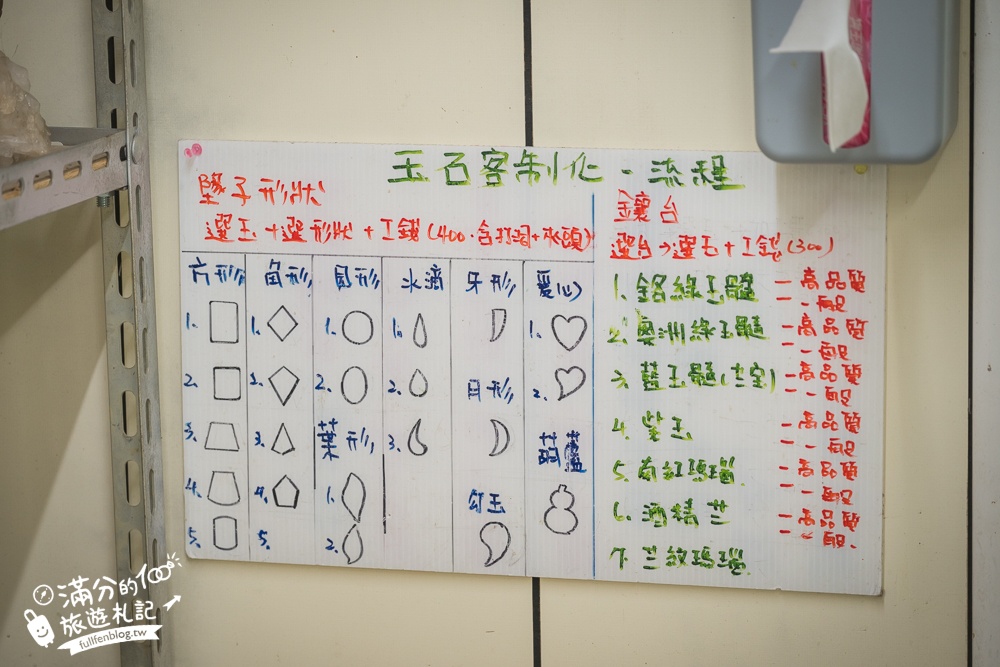 玉石客制化·流程
墜子形狀
選玉+選形狀+工錢(400·含打洞+夾頭)
方形 角形 圓形 水滴 牙形 愛心
1. 1. 1. 1. 1.
2. 2. 2. 2. 月形 2.
3. 3. 葉形 3. 葫蘆
4. 4. 1. 勾玉
5. 5. 2.
鑲台
選台→選玉+工錢(300)
1. 鉻綠玉髓 -高品質
-一般
2. 澳洲綠玉髓 -高品質
-一般
3. 藍玉髓(台宝) -高品質
-一般
4. 紫玉 -高品質
-一般
5. 南紅瑪瑙 -高品質
-一般
6. 酒精兰 -高品質
-一般
7. 兰紋瑪瑙
滿分的100
旅遊札記
fullfenblog.tw